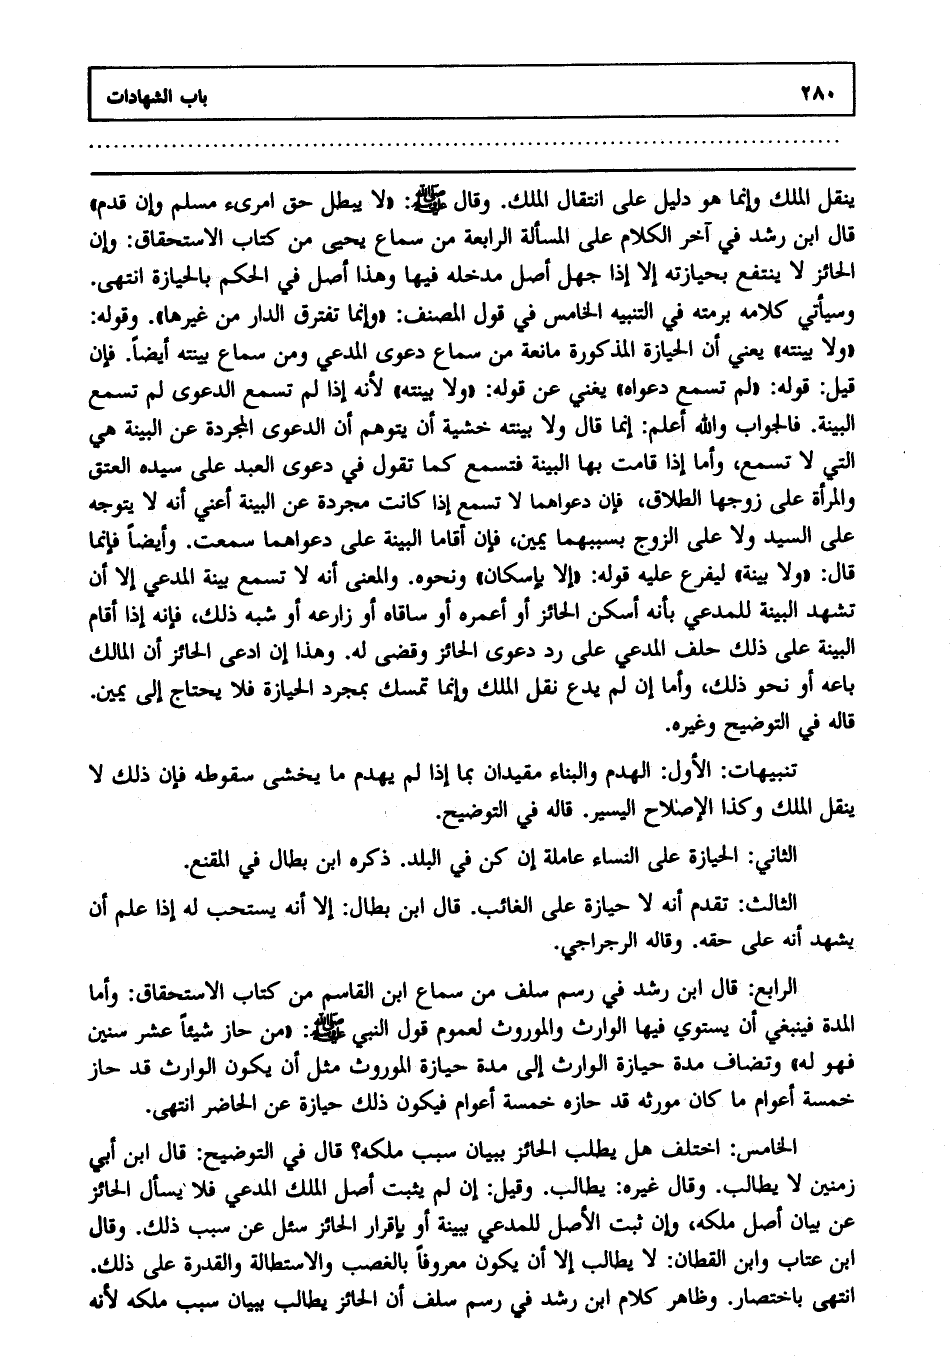 ٢٨٠
باب الشهادات
ينقل الملك وإنما هو دليل على انتقال الملك. وقال ﷺ: «لا يبطل حق امرىء مسلم وإن قدم»
قال ابن رشد في آخر الكلام على المسألة الرابعة من سماع يحيى من كتاب الاستحقاق: وإن
الحائز لا ينتفع بحيازته إلا إذا جهل أصل مدخله فيها وهذا أصل في الحكم بالحيازة انتهى.
وسيأتي كلامه برمته في التنبيه الخامس في قول المصنف: «وإنما تفترق الدار من غيرها». وقوله:
«ولا بينته» يعني أن الحيازة المذكورة مانعة من سماع دعوى المدعي ومن سماع بينته أيضاً. فإن
قيل: قوله: «لم تسمع دعواه» يغني عن قوله: «ولا بينته» لأنه إذا لم تسمع الدعوى لم تسمع
البينة. فالجواب والله أعلم: إنما قال ولا بينته خشية أن يتوهم أن الدعوى المجردة عن البينة هي
التي لا تسمع، وأما إذا قامت بها البينة فتسمع كما تقول في دعوى العبد على سيده العتق
والمرأة على زوجها الطلاق، فإن دعواهما لا تسمع إذا كانت مجردة عن البينة أعني أنه لا يتوجه
على السيد ولا على الزوج بسببهما يمين، فإن أقاما البينة على دعواهما سمعت. وأيضاً فإنما
قال: «ولا بينة» ليفرع عليه قوله: «إلا بإسكان» ونحوه. والمعنى أنه لا تسمع بينة المدعي إلا أن
تشهد البينة للمدعي بأنه أسكن الحائز أو أعمره أو ساقاه أو زارعه أو شبه ذلك، فإنه إذا أقام
البينة على ذلك حلف المدعي على رد دعوى الحائز وقضى له. وهذا إن ادعى الحائز أن المالك
باعه أو نحو ذلك، وأما إن لم يدع نقل الملك وإنما تمسك بمجرد الحيازة فلا يحتاج إلى يمين.
قاله في التوضيح وغيره.
تنبيهات: الأول: الهدم والبناء مقيدان بما إذا لم يهدم ما يخشى سقوطه فإن ذلك لا
ينقل الملك وكذا الإصلاح اليسير. قاله في التوضيح.
الثاني: الحيازة على النساء عاملة إن كن في البلد. ذكره ابن بطال في المقنع.
الثالث: تقدم أنه لا حيازة على الغائب. قال ابن بطال: إلا أنه يستحب له إذا علم أن
يشهد أنه على حقه. وقاله الرجراجي.
الرابع: قال ابن رشد في رسم سلف من سماع ابن القاسم من كتاب الاستحقاق: وأما
المدة فينبغي أن يستوي فيها الوارث والموروث لعموم قول النبي ﷺ: «من حاز شيئاً عشر سنين
فهو له» وتضاف مدة حيازة الوارث إلى مدة حيازة الموروث مثل أن يكون الوارث قد حاز
خمسة أعوام ما كان مورثه قد حازه خمسة أعوام فيكون ذلك حيازة عن الحاضر انتهى.
الخامس: اختلف هل يطلب الحائز ببيان سبب ملكه؟ قال في التوضيح: قال ابن أبي
زمنين لا يطالب. وقال غيره: يطالب. وقيل: إن لم يثبت أصل الملك المدعي فلا يسأل الحائز
عن بيان أصل ملكه، وإن ثبت الأصل للمدعي ببينة أو بإقرار الحائز سئل عن سبب ذلك. وقال
ابن عتاب وابن القطان: لا يطالب إلا أن يكون معروفاً بالغصب والاستطالة والقدرة على ذلك.
انتهى باختصار. وظاهر كلام ابن رشد في رسم سلف أن الحائز يطالب ببيان سبب ملكه لأنه